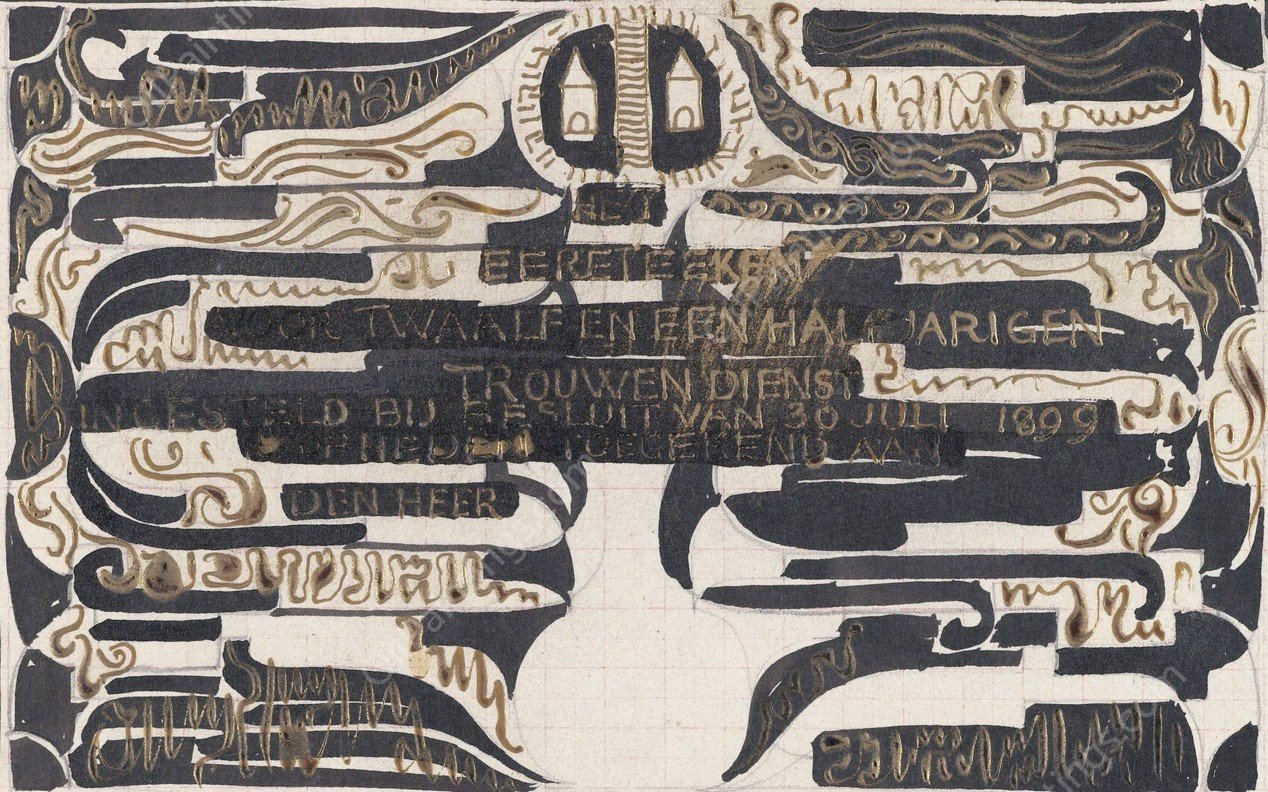 HET
EERETEEKEN
VOOR TWAALF EN EEN HALF JARIGEN
TROUWEN DIENST
INGESTELD BIJ BESLUIT VAN 30 JULI 1899
HEDEN TOEGEKEND AAN
DEN HEER